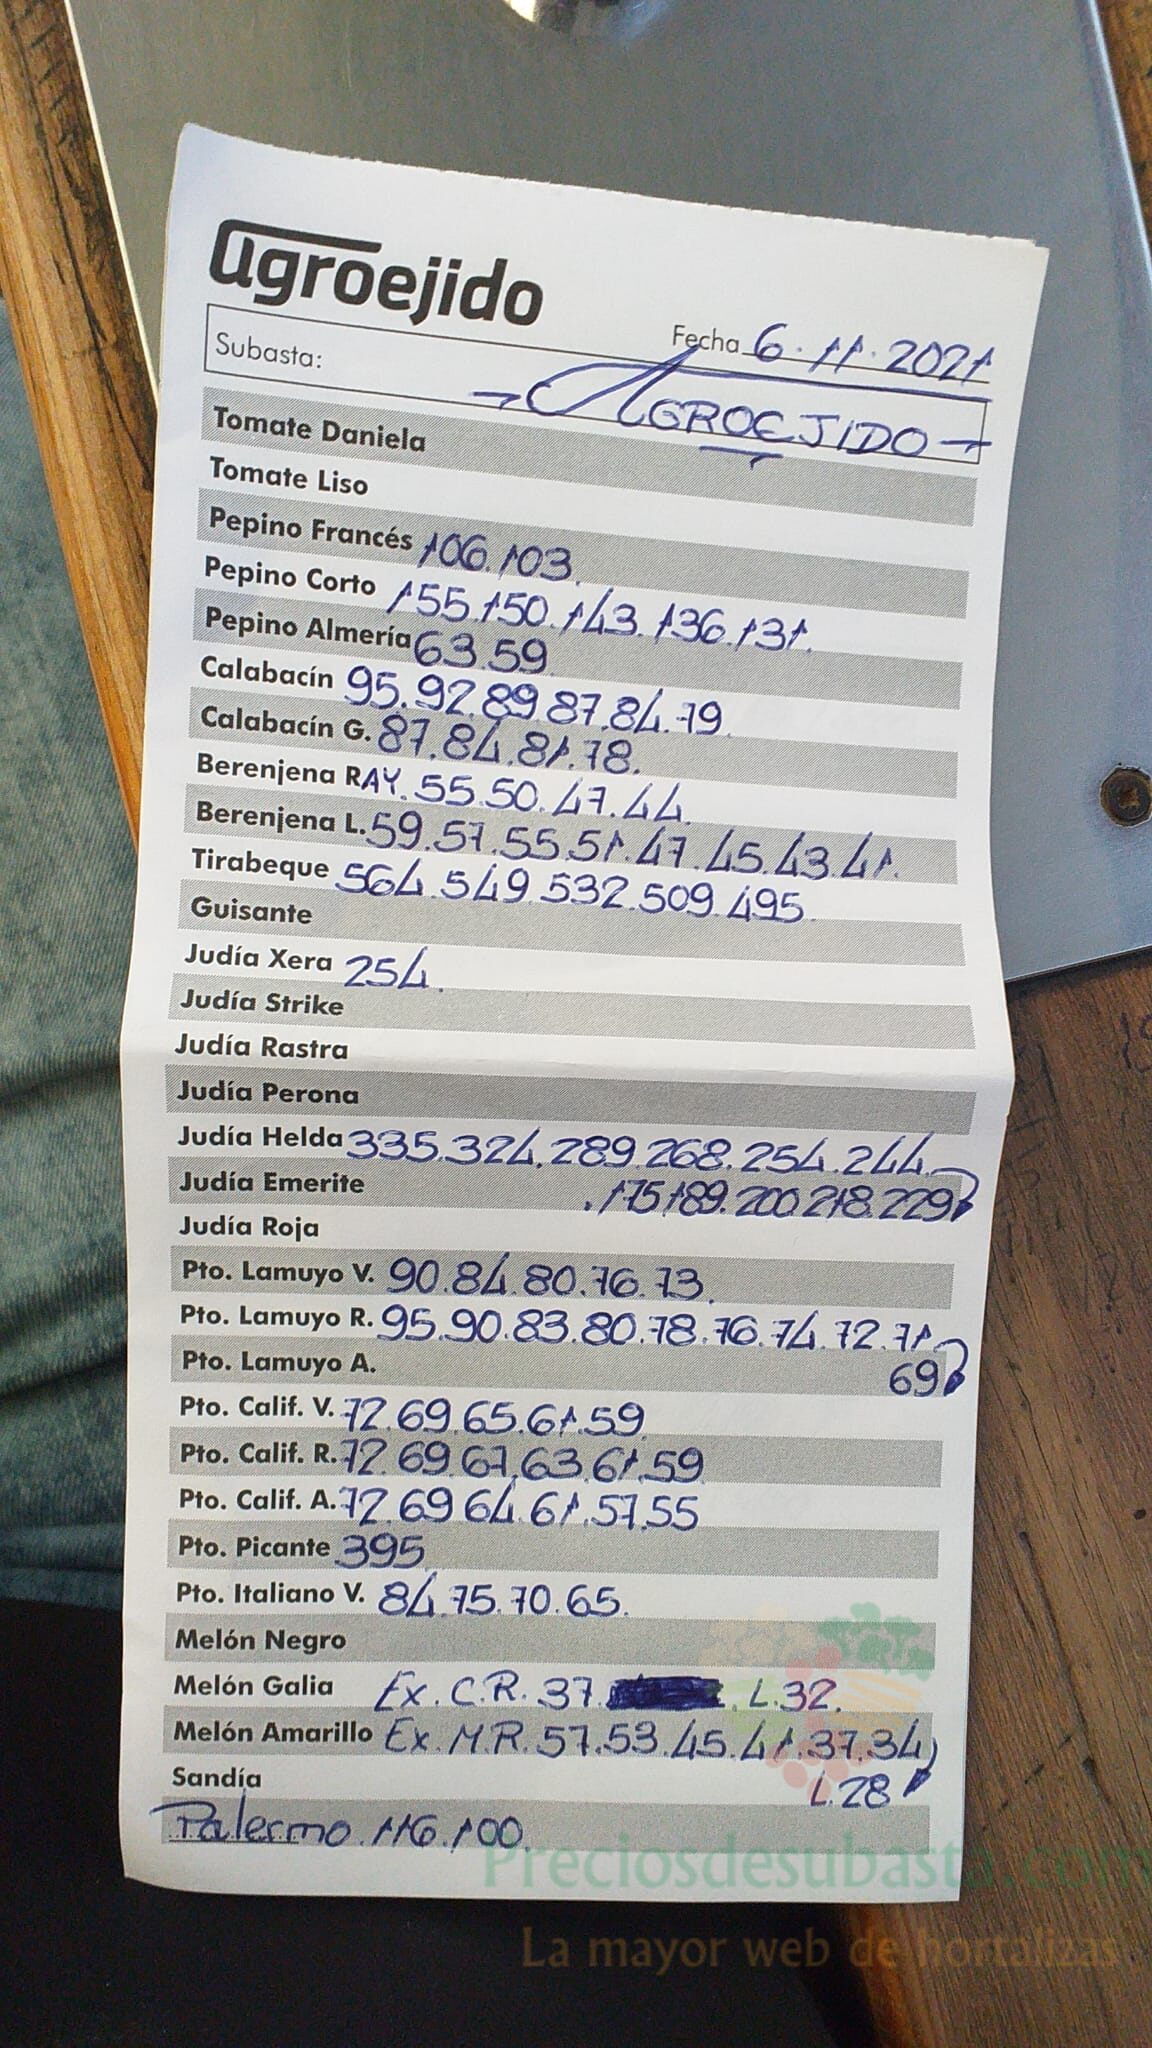 agroejido
Fecha 6.11.2021
Subasta: AGROEJIDO
Tomate Daniela
Tomate Liso
Pepino Francés 106.103.
Pepino Corto 155.150.143.136.131.
Pepino Almería 63.59
Calabacín 95.92.89.87.84.79.
Calabacín G. 87.84.81.78.
Berenjena RAY. 55.50.47.44.
Berenjena L. 59.57.55.51.47.45.43.41.
Tirabeque 564.549.532.509.495.
Guisante
Judía Xera 254.
Judía Strike
Judía Rastra
Judía Perona
Judía Helda 335.324.289.268.254.244.
Judía Emerite .175.189.200.218.229
Judía Roja
Pto. Lamuyo V. 90.84.80.76.73.
Pto. Lamuyo R. 95.90.83.80.78.76.74.72.71.
Pto. Lamuyo A. 69
Pto. Calif. V. 72.69.65.61.59
Pto. Calif. R. 72.69.67.63.61.59
Pto. Calif. A. 72.69.64.61.57.55
Pto. Picante 395
Pto. Italiano V. 84.75.70.65.
Melón Negro
Melón Galia Ex. C.R. 37. . L.32.
Melón Amarillo Ex. M.R. 57.53.45.41.37.34
Sandía L.28
Palermo.116.100.
Preciosdesubasta.com
La mayor web de hortalizas